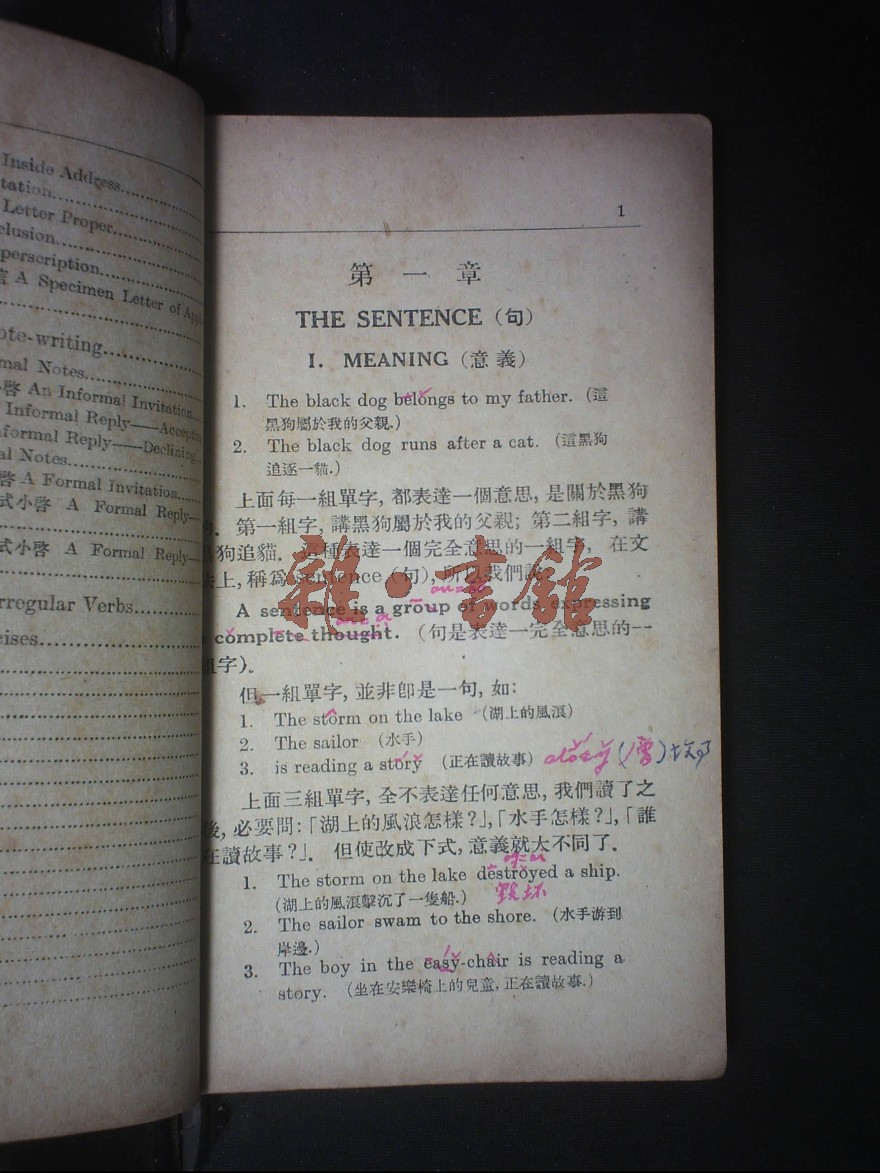 Inside Address
tation
Letter Proper
clusion
perscription
A Specimen Letter of
ote-writing
mal Notes
啓 An Informal Invitation
Informal Reply——Accepting
nformal Reply——Declining
al Notes
啓 A Formal Invitation
式小啓 A Formal Reply—
式小啓 A Formal Reply—
rregular Verbs
cises
1
第一章
THE SENTENCE (句)
I. MEANING (意義)
1. The black dog belongs to my father. (這
黑狗屬於我的父親.)
2. The black dog runs after a cat. (這黑狗
追逐一貓.)
上面每一組單字, 都表達一個意思, 是關於黑狗
. 第一組字, 講黑狗屬於我的父親; 第二組字, 講
狗追貓. 這種表達一個完全意思的一組字, 在文
上, 稱爲 sentence (句), 所以我們說:
雜·書館
A sentence is a group of words, expressing
complete thought. (句是表達一完全意思的一
字).
但一組單字, 並非卽是一句, 如:
1. The storm on the lake (湖上的風浪)
2. The sailor (水手)
3. is reading a story (正在讀故事)
上面三組單字, 全不表達任何意思, 我們讀了之
後, 必要問:「湖上的風浪怎樣?」,「水手怎樣?」,「誰
在讀故事?」. 但使改成下式, 意義就大不同了.
1. The storm on the lake destroyed a ship.
毀坏
(湖上的風浪擊沉了一隻船.)
2. The sailor swam to the shore. (水手游到
岸邊.)
3. The boy in the easy-chair is reading a
story. (坐在安樂椅上的兒童, 正在讀故事.)